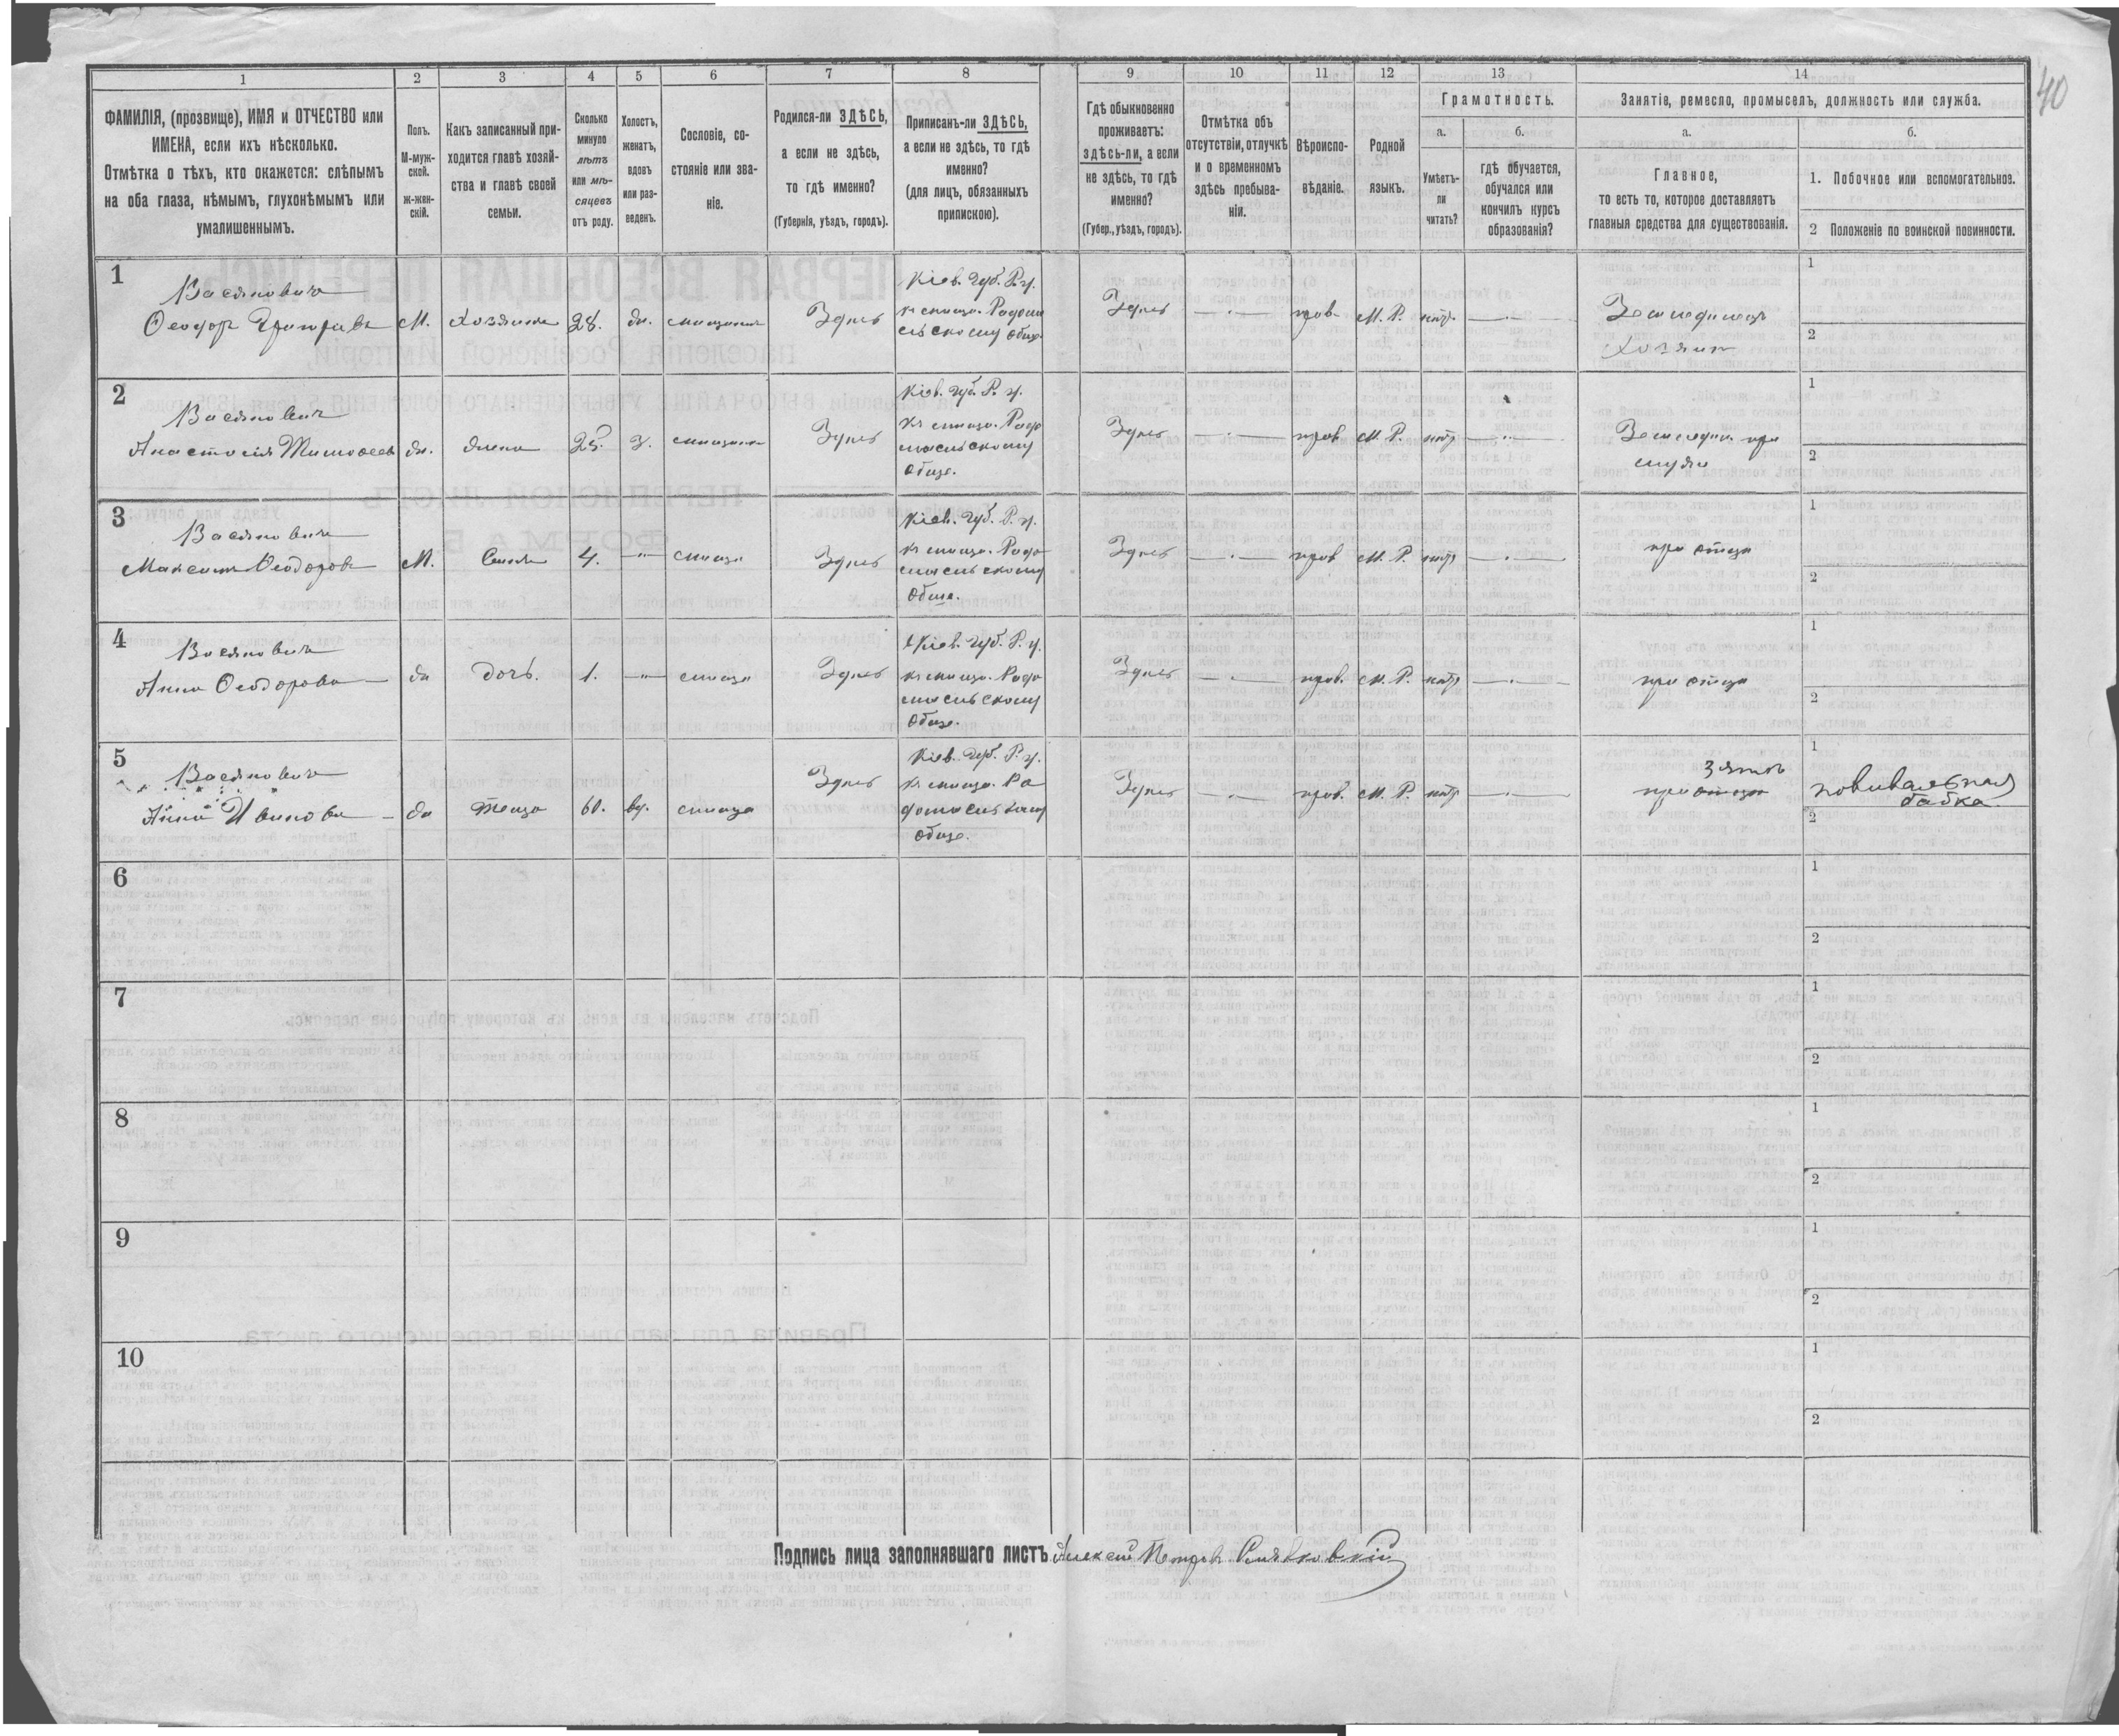 40
1 2 3 4 5 6 7 8 9 10 11 12 13 14
ФАМИЛІЯ, (прозвище), ИМЯ и ОТЧЕСТВО или
ИМЕНА, если ихъ нѣсколько.
Отмѣтка о тѣхъ, кто окажется: слѣпымъ
на оба глаза, нѣмымъ, глухонѣмымъ или
умалишеннымъ.
Полъ.
М-муж-
ской.
ж-жен-
скій.
Какъ записанный при-
ходится главѣ хозяй-
ства и главѣ своей
семьи.
Сколько
минуло
лѣтъ
или мѣ-
сяцевъ
отъ роду.
Холостъ,
женатъ,
вдовъ
или раз-
веденъ.
Сословіе, со-
стояніе или зва-
ніе.
Родился-ли ЗДѢСЬ,
а если не здѣсь,
то гдѣ именно?
(Губернія, уѣздъ, городъ).
Приписанъ-ли ЗДѢСЬ,
а если не здѣсь, то гдѣ
именно?
(для лицъ, обязанныхъ
припискою).
Гдѣ обыкновенно
проживаетъ:
здѣсь-ли, а если
не здѣсь, то гдѣ
именно?
(Губер., уѣздъ, городъ).
Отмѣтка объ
отсутствіи, отлучкѣ
и о временномъ
здѣсь пребыва-
ніи.
Вѣроиспо-
вѣданіе.
Родной
языкъ.
Грамотность.
а.
Умѣетъ-
ли
читать?
б.
гдѣ обучается,
обучался или
кончилъ курсъ
образованія?
Занятіе, ремесло, промыселъ, должность или служба.
а.
Главное,
то есть то, которое доставляетъ
главныя средства для существованія.
б.
1. Побочное или вспомогательное.
2 Положеніе по воинской повинности.
1
Васяновичъ
Ѳеодоръ
М. Хозяинъ 28. жн. Здѣсь
Кіев. Губ. Р. у.
Здѣсь прав. М. Р. нѣтъ
Земледѣлецъ
Хозяинъ
1
2
2
Васяновичъ
Анастасія Тимоѳеев
жн. жена 25. з. Здѣсь
Кіев. Губ. Р. у.
къ мѣщ. Радо
мысльскому
общ.
Здѣсь прав М. Р. нѣтъ
Земледѣл. при
мужѣ
1
2
3
Васяновичъ
Максимъ Ѳеодоровъ
М. Сынъ 4. — мѣщ. Здѣсь
Кіев. Губ. Р. у.
къ мѣщ. Радо
мысльскому
общ.
Здѣсь прав М. Р. нѣтъ
при отцѣ
1
2
4
Васяновичъ
Анна Ѳеодорова
жн Дочь. 1. — мѣщ. Здѣсь
Кіев. Губ. Р. у.
къ мѣщ. Радо
мысльскому
общ.
Здѣсь прав. М. Р. нѣтъ
при отцѣ
1
2
5
Васяновичъ
Анна Иванова
жн Теща 60. вд. мѣщ. Здѣсь
Кіев. Губ. Р. у.
къ мѣщ. Ра
домысльскому
общ.
Здѣсь прав. М. Р. нѣтъ
зятѣ
при отцѣ
1
повивальная
бабка
2
6
1
2
7
1
2
8
1
2
9
1
2
10
1
2
Подпись лица заполнявшаго листъ Алексѣй Петров